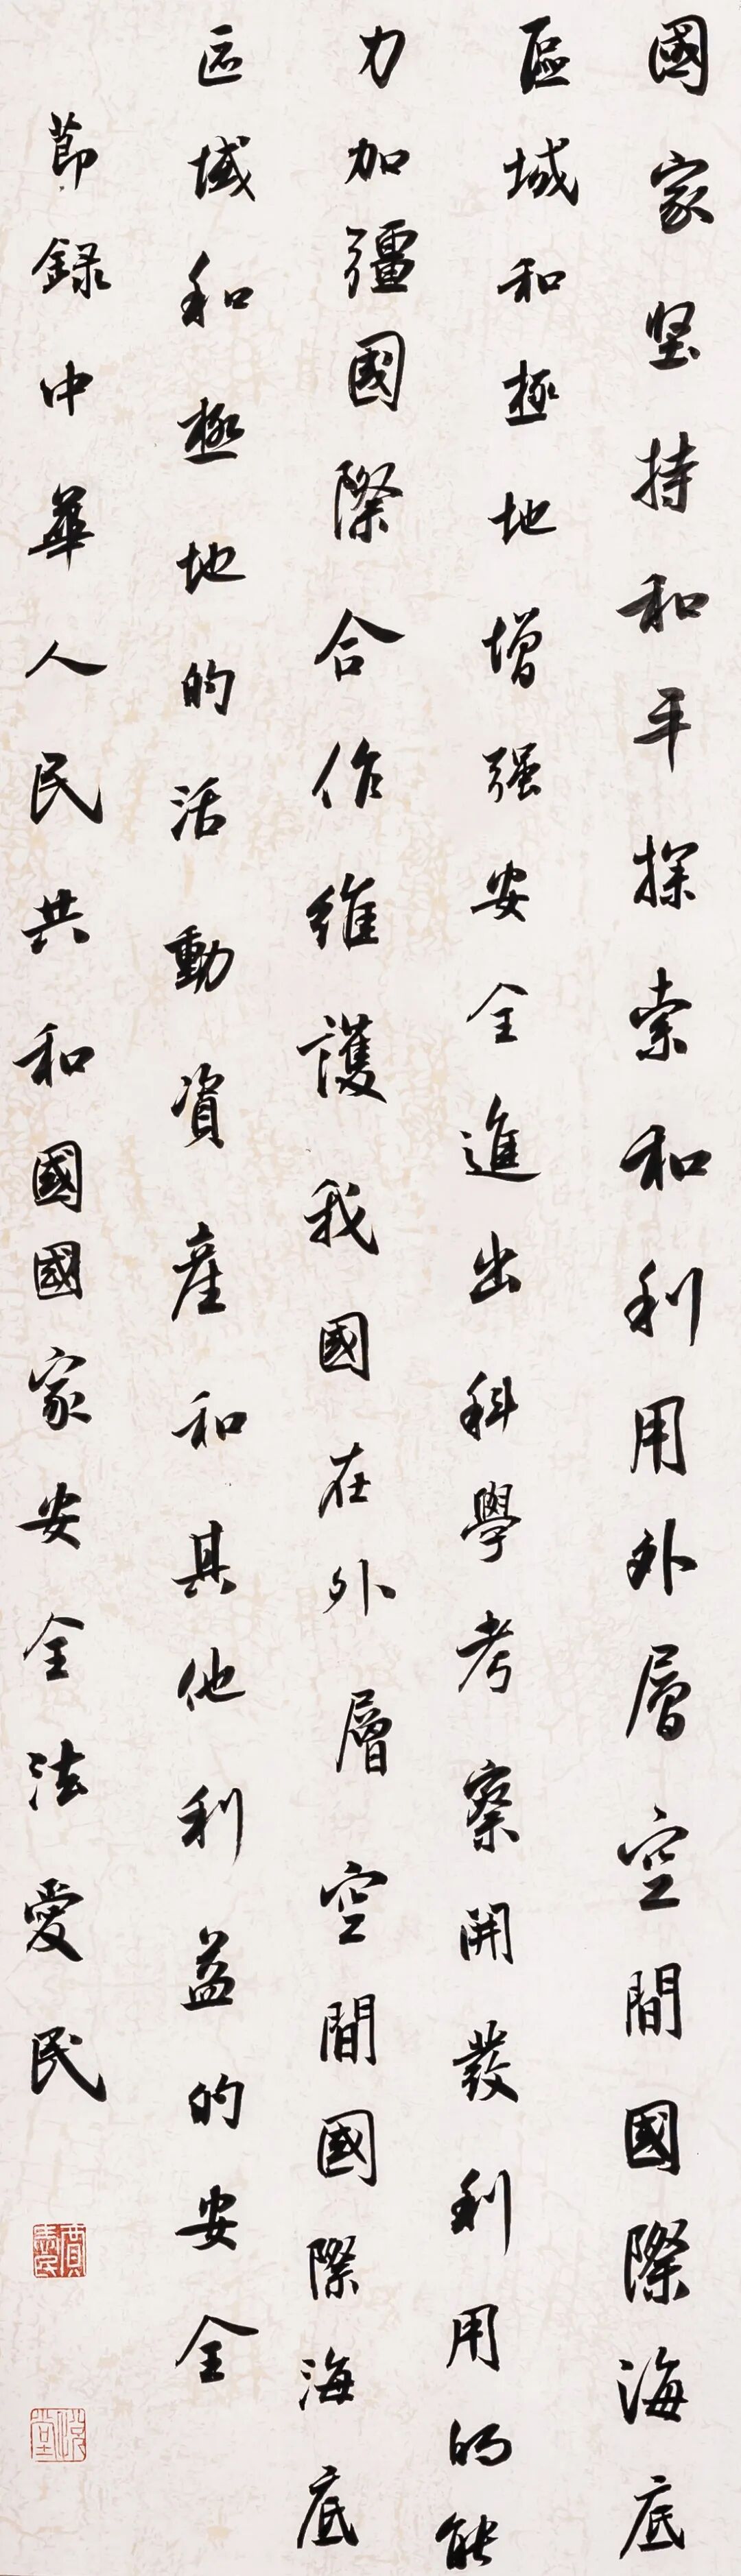 國家堅持和平探索和利用外層空間國際海底
區域和極地增强安全進出科學考察開發利用的能
力加疆國際合作維護我國在外層空間國際海底
區域和極地的活動資産和其他利益的安全
節録中華人民共和國國家安全法愛民